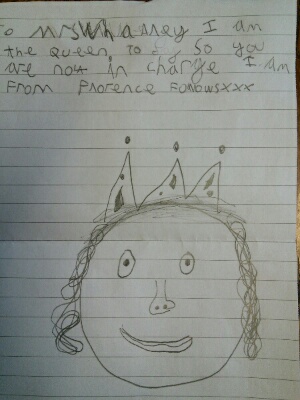 To MrsWhamey I am
the queen to day So you
are not in charge I am
From Florence xxx